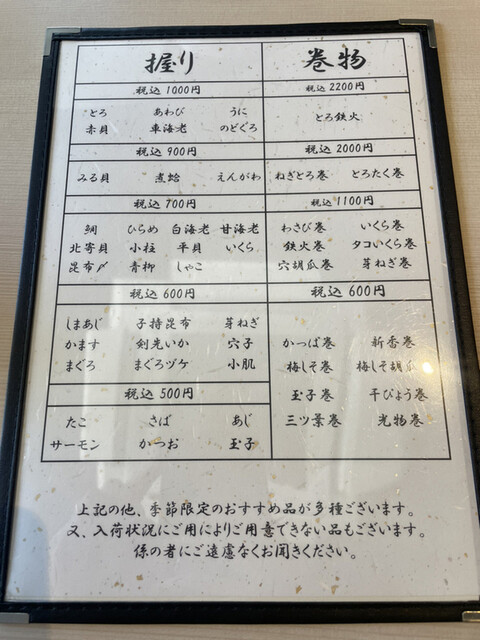 握り
税込 1000円
とろ あわび うに
赤貝 車海老 のどぐろ
税込 900円
みる貝 煮蛤 えんがわ
税込 700円
鯛 ひらめ 白海老 甘海老
北寄貝 小柱 平貝 いくら
昆布〆 青柳 しゃこ
税込 600円
しまあじ 子持昆布 芽ねぎ
かます 剣先いか 穴子
まぐろ まぐろヅケ 小肌
税込 500円
たこ さば あじ
サーモン かつお 玉子
巻物
税込 2200円
とろ鉄火
税込 2000円
ねぎとろ巻 とろたく巻
税込 1100円
わさび巻 いくら巻
鉄火巻 タコいくら巻
穴胡瓜巻 芽ねぎ巻
税込 600円
かっぱ巻 新香巻
梅しそ巻 梅しそ胡瓜
玉子巻 干ぴょう巻
三ツ葉巻 光物巻
上記の他、季節限定のおすすめ品が多種ございます。
又、入荷状況にご用によりご用意できない品もございます。
係の者にご遠慮なくお聞きください。